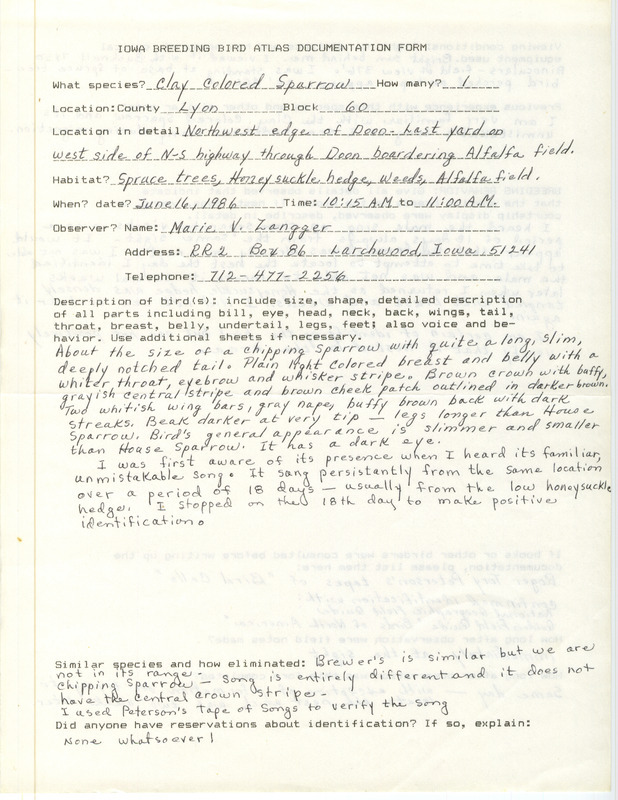 IOWA BREEDING BIRD ATLAS DOCUMENTATION FORM
What species? Clay Colored Sparrow How many? 1
Location: County Lyon Block 60
Location in detail Northwest edge of Doon - Last yard on
west side of N-S highway through Doon boardering Alfalfa field.
Habitat? Spruce trees, Honeysuckle hedge, Weeds, Alfalfa field.
When? date? June 16, 1986 Time: 10:15 A.M. to 11:00 A.M.
Observer? Name: Marie V. Zangger
Address: RR 2 Box 86 Larchwood, Iowa 51241
Telephone: 712-477-2256
Description of bird(s): include size, shape, detailed description
of all parts including bill, eye, head, neck, back, wings, tail,
throat, breast, belly, undertail, legs, feet; also voice and be-
havior. Use additional sheets if necessary.
About the size of a chipping Sparrow with quite a long, slim,
deeply notched tail. Plain light colored breast and belly with a
whiter throat, eyebrow and whisker stripe. Brown crown with buffy,
grayish central stripe and brown cheek patch outlined in darker brown.
Two whitish wing bars, gray nape, buffy brown back with dark
streaks. Beak darker at very tip — legs longer than House
Sparrow. Bird's general appearance is slimmer and smaller
than House Sparrow. It has a dark eye.
I was first aware of its presence when I heard its familiar,
unmistakable song. It sang persistantly from the same location
over a period of 18 days — usually from the low honeysuckle
hedge. I stopped on the 18th day to make positive
identification.
Similar species and how eliminated: Brewer's is similar but we are
not in its range.
Chipping Sparrow — song is entirely different and it does not
have the central crown stripe.
I used Peterson's Tape of Songs to verify the song
Did anyone have reservations about identification? If so, explain:
None whatsoever!